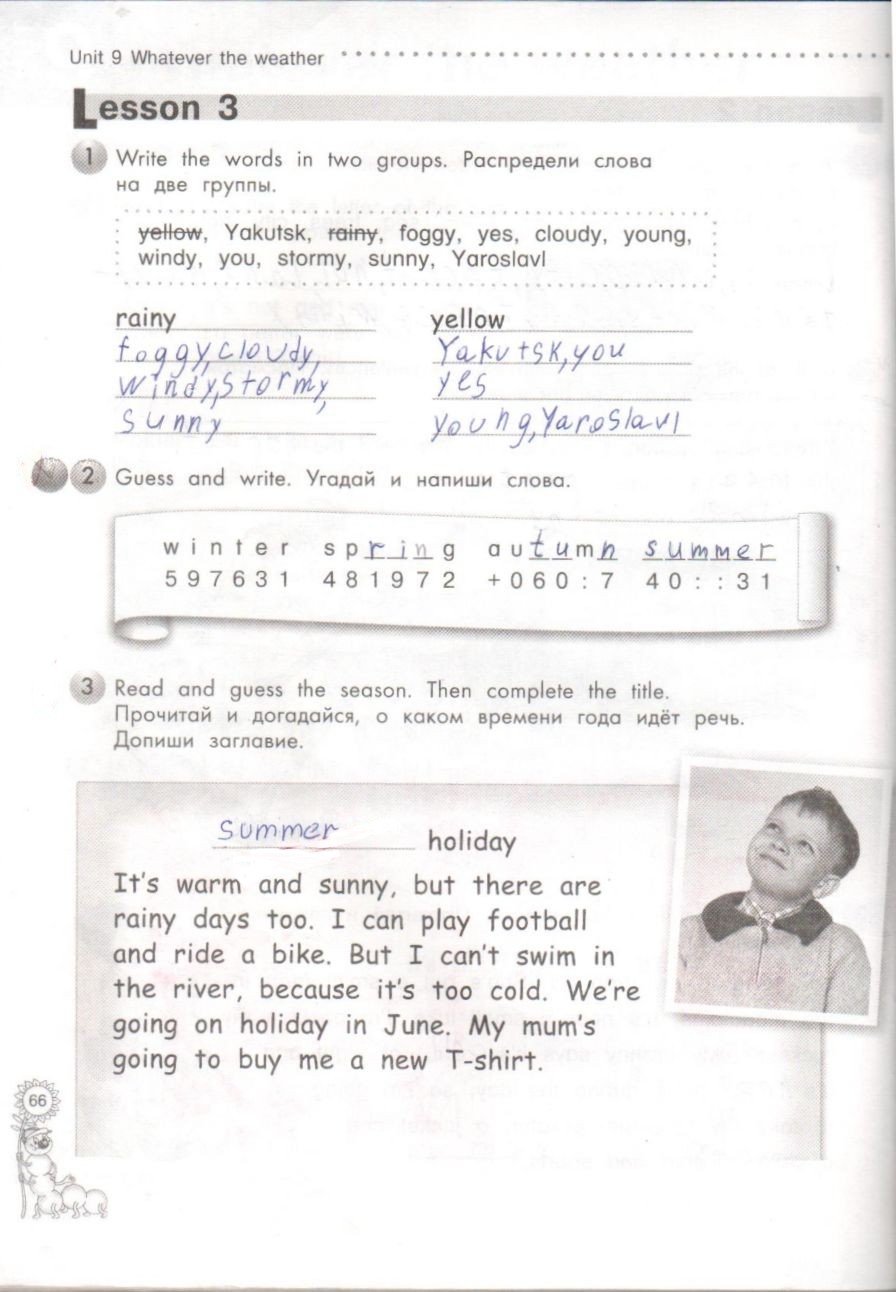 Unit 9 Whatever the weather
Lesson 3
1 Write the words in two groups. Распредели слова
на две группы.
yellow, Yakutsk, rainy, foggy, yes, cloudy, young,
windy, you, stormy, sunny, Yaroslavl
rainy yellow
foggy, cloudy, Yakutsk, you
windy, stormy, yes
sunny young, Yaroslavl
2 Guess and write. Угадай и напиши слова.
winter spring autumn summer
597631 481972 +060:7 40::31
3 Read and guess the season. Then complete the title.
Прочитай и догадайся, о каком времени года идёт речь.
Допиши заглавие.
Summer holiday
It's warm and sunny, but there are
rainy days too. I can play football
and ride a bike. But I can't swim in
the river, because it's too cold. We're
going on holiday in June. My mum's
going to buy me a new T-shirt.
66